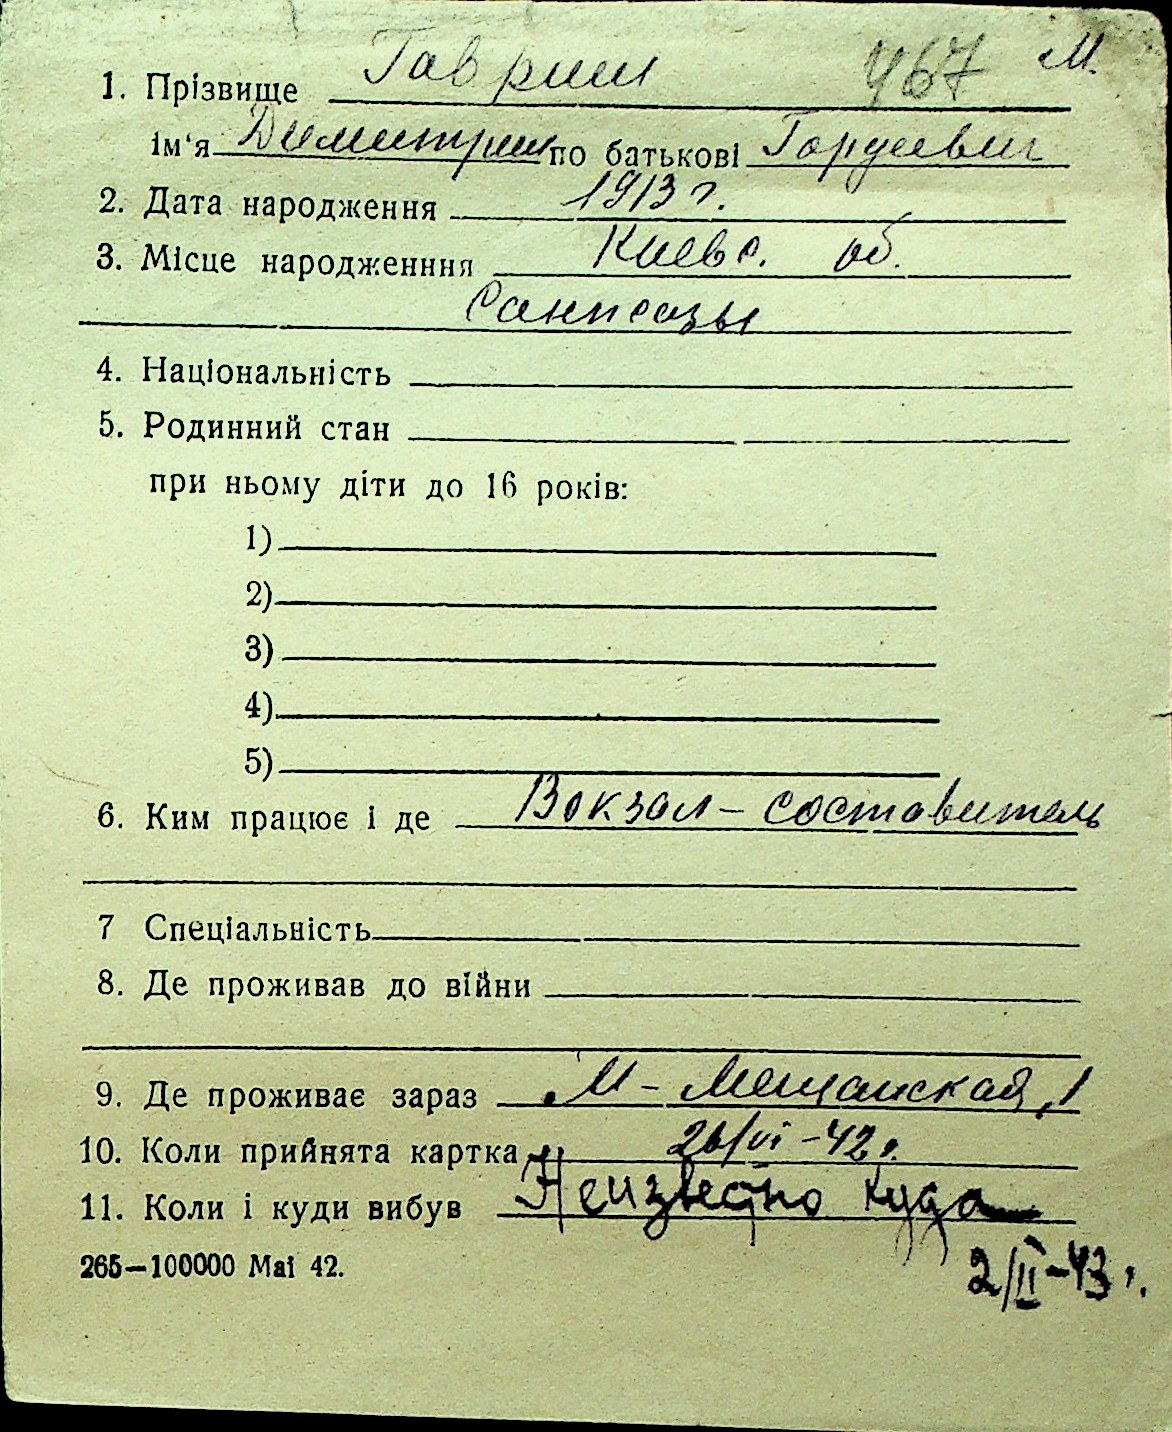 1. Прізвище Гавриш 467 М.
ім'я Димитрий по батькові Гордиевич
2. Дата народження 1913 г.
3. Місце народженння Киевс. об.
4. Національність
5. Родинний стан
при ньому діти до 16 років:
1)
2)
3)
4)
5)
6. Ким працює і де Вокзал - составитель
7 Спеціальність
8. Де проживав до війни
9. Де проживає зараз М - Мещанская, 1
10. Коли прийнята картка 26/VI - 42 г.
11. Коли і куди вибув Неизвестно куда
265—100000 Маі 42. 2/II - 43 г.